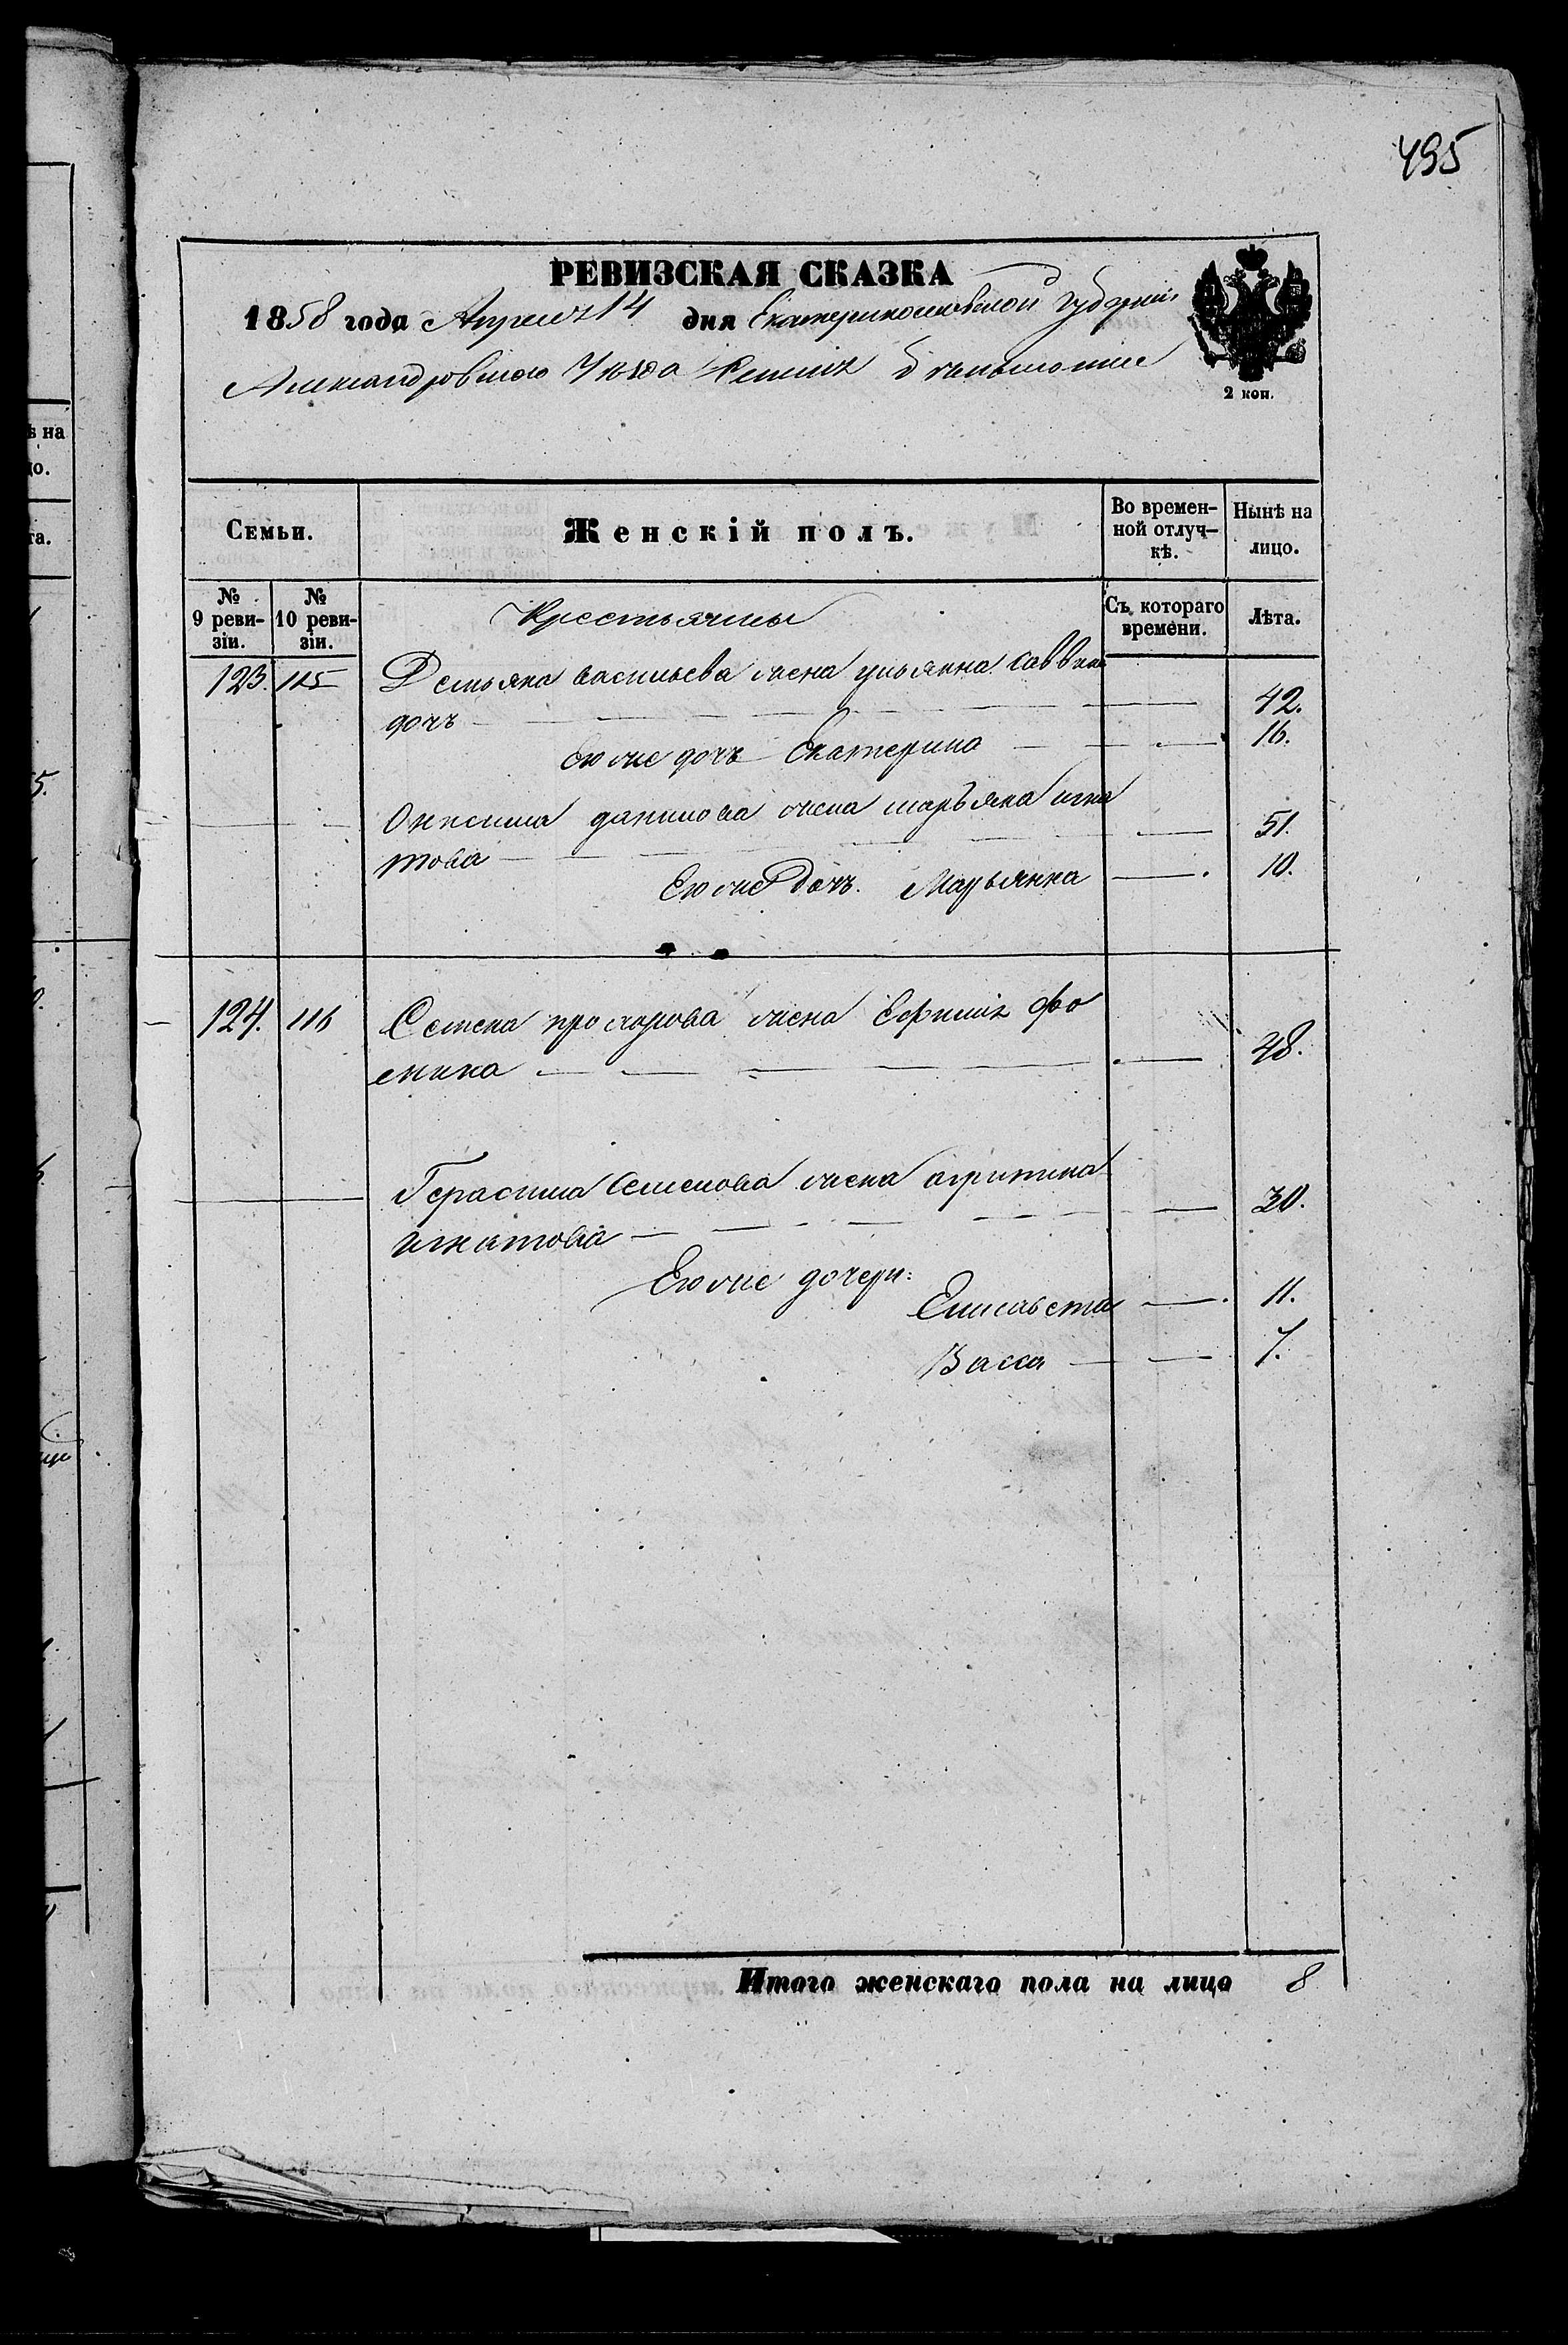 495
РЕВИЗСКАЯ СКАЗКА
1858 года Апреля 14 дня Екатеринославской губернии
Александровского Уезда
2 коп.
Семьи.
Женскій полъ.
Во времен-
ной отлуч-
кѣ.
Нынѣ на
лицо.
№
9 реви-
зіи.
№
10 реви-
зіи.
Крестьяны
Съ котораго
времени.
Лѣта.
123. 115 Демьяна васильева жена ульянна саввина
дочь 42.
Ею же дочь Екатерина 16.
Онисима данилова жена марьяна игна
това 51.
Ею же дочь. Марьянна 10.
124. 116 Семена прохорова жена Ефимия фо
мина 48.
Герасима Семенова жена агрипина
игнатова 30.
Ею же дочери:
Елисавета 11.
Васса 7.
Итого женскаго пола на лицо 8
ѣ на
цо.
та.
5.